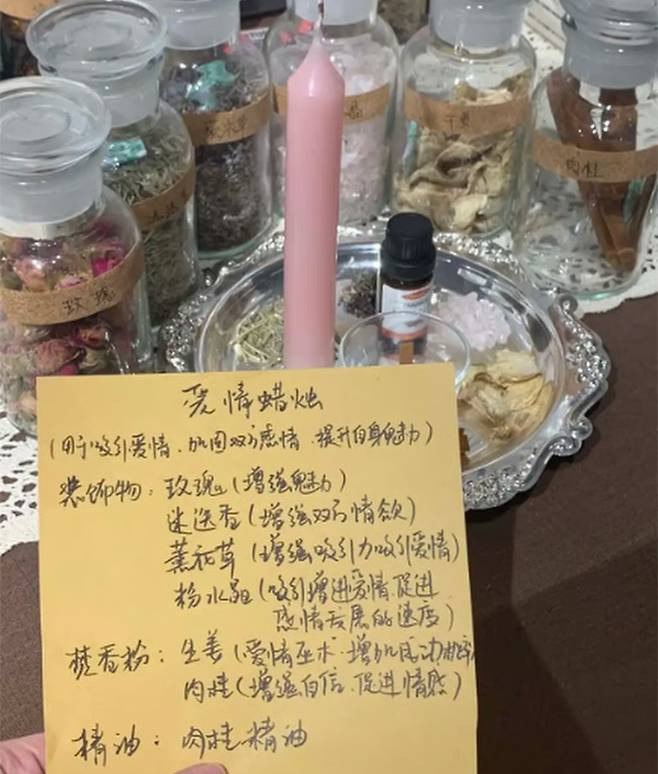 玫瑰
迷迭香
薰衣草
晶
干姜
肉桂
爱情蜡烛
(用于吸引爱情、加固双方感情、提升自身魅力)
装饰物：玫瑰(增强魅力)
迷迭香(增强双方情欲)
薰衣草(增强吸引力吸引爱情)
粉水晶(吸引增进爱情，促进
感情发展的速度)
焚香粉：生姜(爱情巫术·增加成功概率)
肉桂(增强自信、促进情感)
精油：肉桂精油